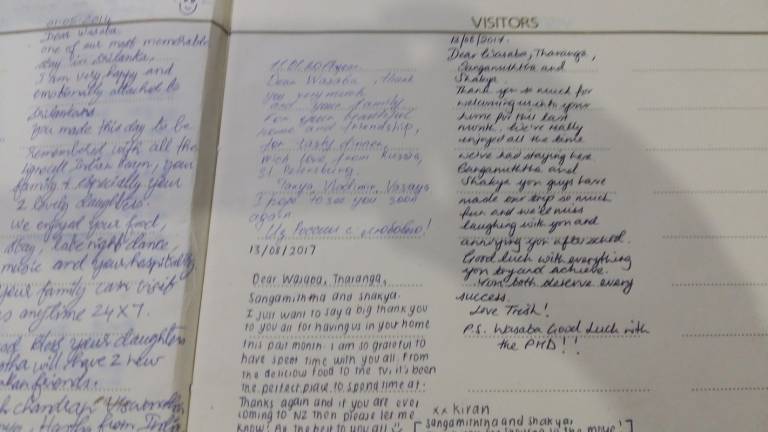 01-05-2017
Dear Wasaba.
one of our most memorable
stay in Srilanka,
I am very happy and
emotionally attached to
Srilankans
You made this day to be
Remembered with all the
family & especially your
2 lovely daughters.
we enjoyed your food,
stay, late night dance,
music and your hospitality
your family can visit
us anytime 24x7.
God bless your daughters
will have 2 new
friends.
VISITORS
Dear Wasaba, thank
you very much
and your family
for your beautiful
home and friendship,
for tasty dinner,
With love, from Russia,
St. Petersburg.
Tanya, Vladimir,
I hope to see you soon
again
Из России с любовью!
13/08/2017
Dear Wasaba, Tharanga,
Sangamithma and Shakya.
I just want to say a big thank you
to you all for having us in your home
this past month. I am so grateful to
have spent time with you all. From
the delicious food to the tv, it's been
the perfect place to spend time at.
Thanks again and if you are ever
coming to NZ then please let me
know! All the best to you all
xx Kiran
13/08/2017.
Dear Wasaba, Tharanga,
and
Shakya
Thank you so much for
welcoming us into your
home for this last
month. We've really
enjoyed all the time
we've had staying here
and
Shakya you guys have
made our trip so much
fun and we'll miss
laughing with you and
annoying you after school.
Good luck with everything
you try and achieve.
You both deserve every
success.
Love
P.S. Wasaba Good luck with
the PHD!!